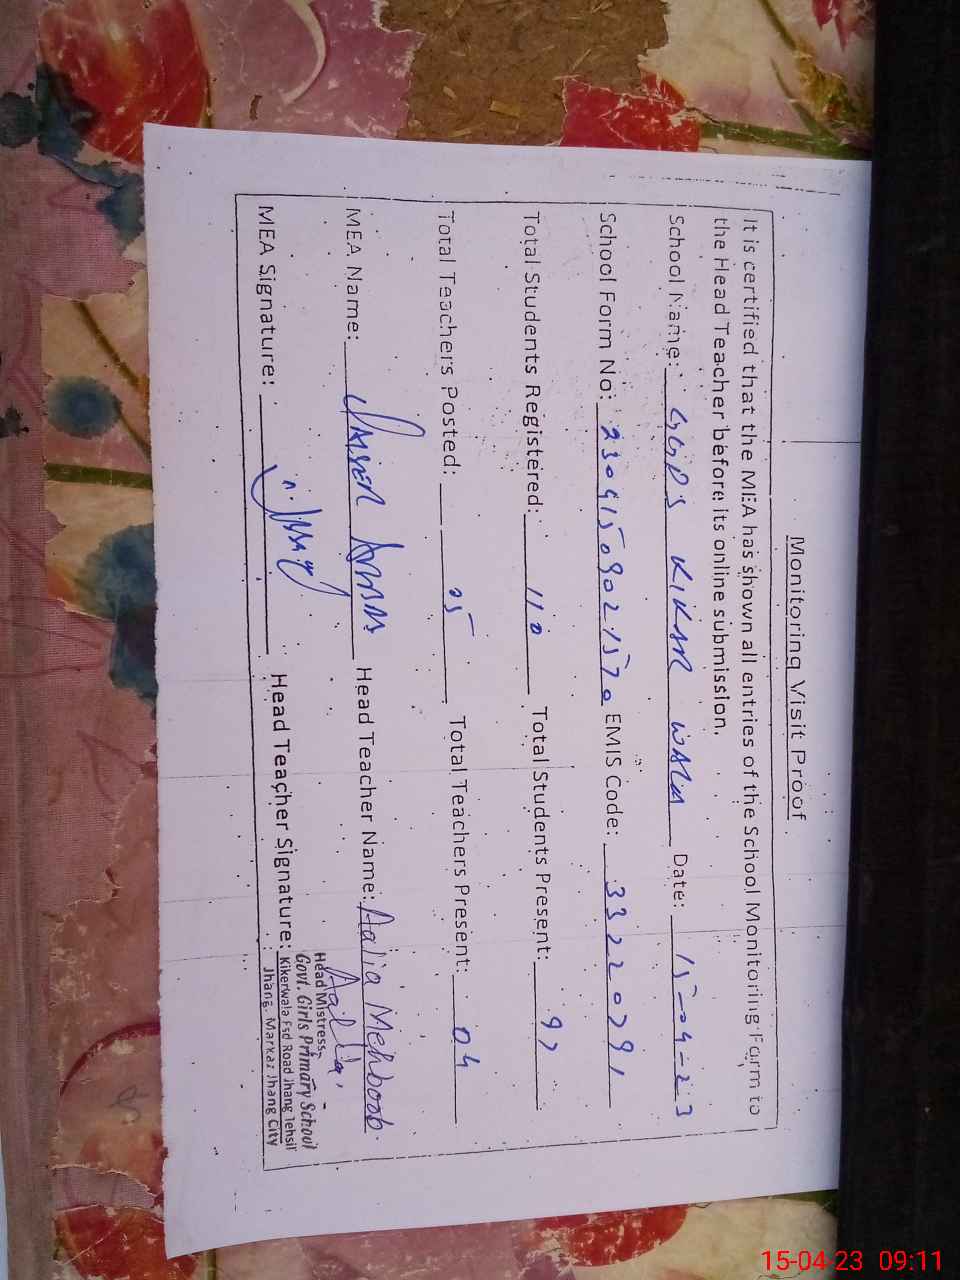 Monitoring Visit Proof
It is certified that the MEA has shown all entries of the School Monitoring Form to
the Head Teacher before its online submission.
School Name: GGPS KIKAR WALA Date: 15-04-23
School Form No: EMIS Code: 33220791
Total Students Registered: 110 Total Students Present: 97
Total Teachers Posted: 05 Total Teachers Present: 04
MEA Name: Head Teacher Name: Aalia Mehboob
MEA Signature: Head Teacher Signature: Aalia
Head Mistress,
Govt. Girls Primary School
Kikerwala Fsd Road Jhang Tehsil
Jhang, Markaz Jhang City
15-04-23 09:11